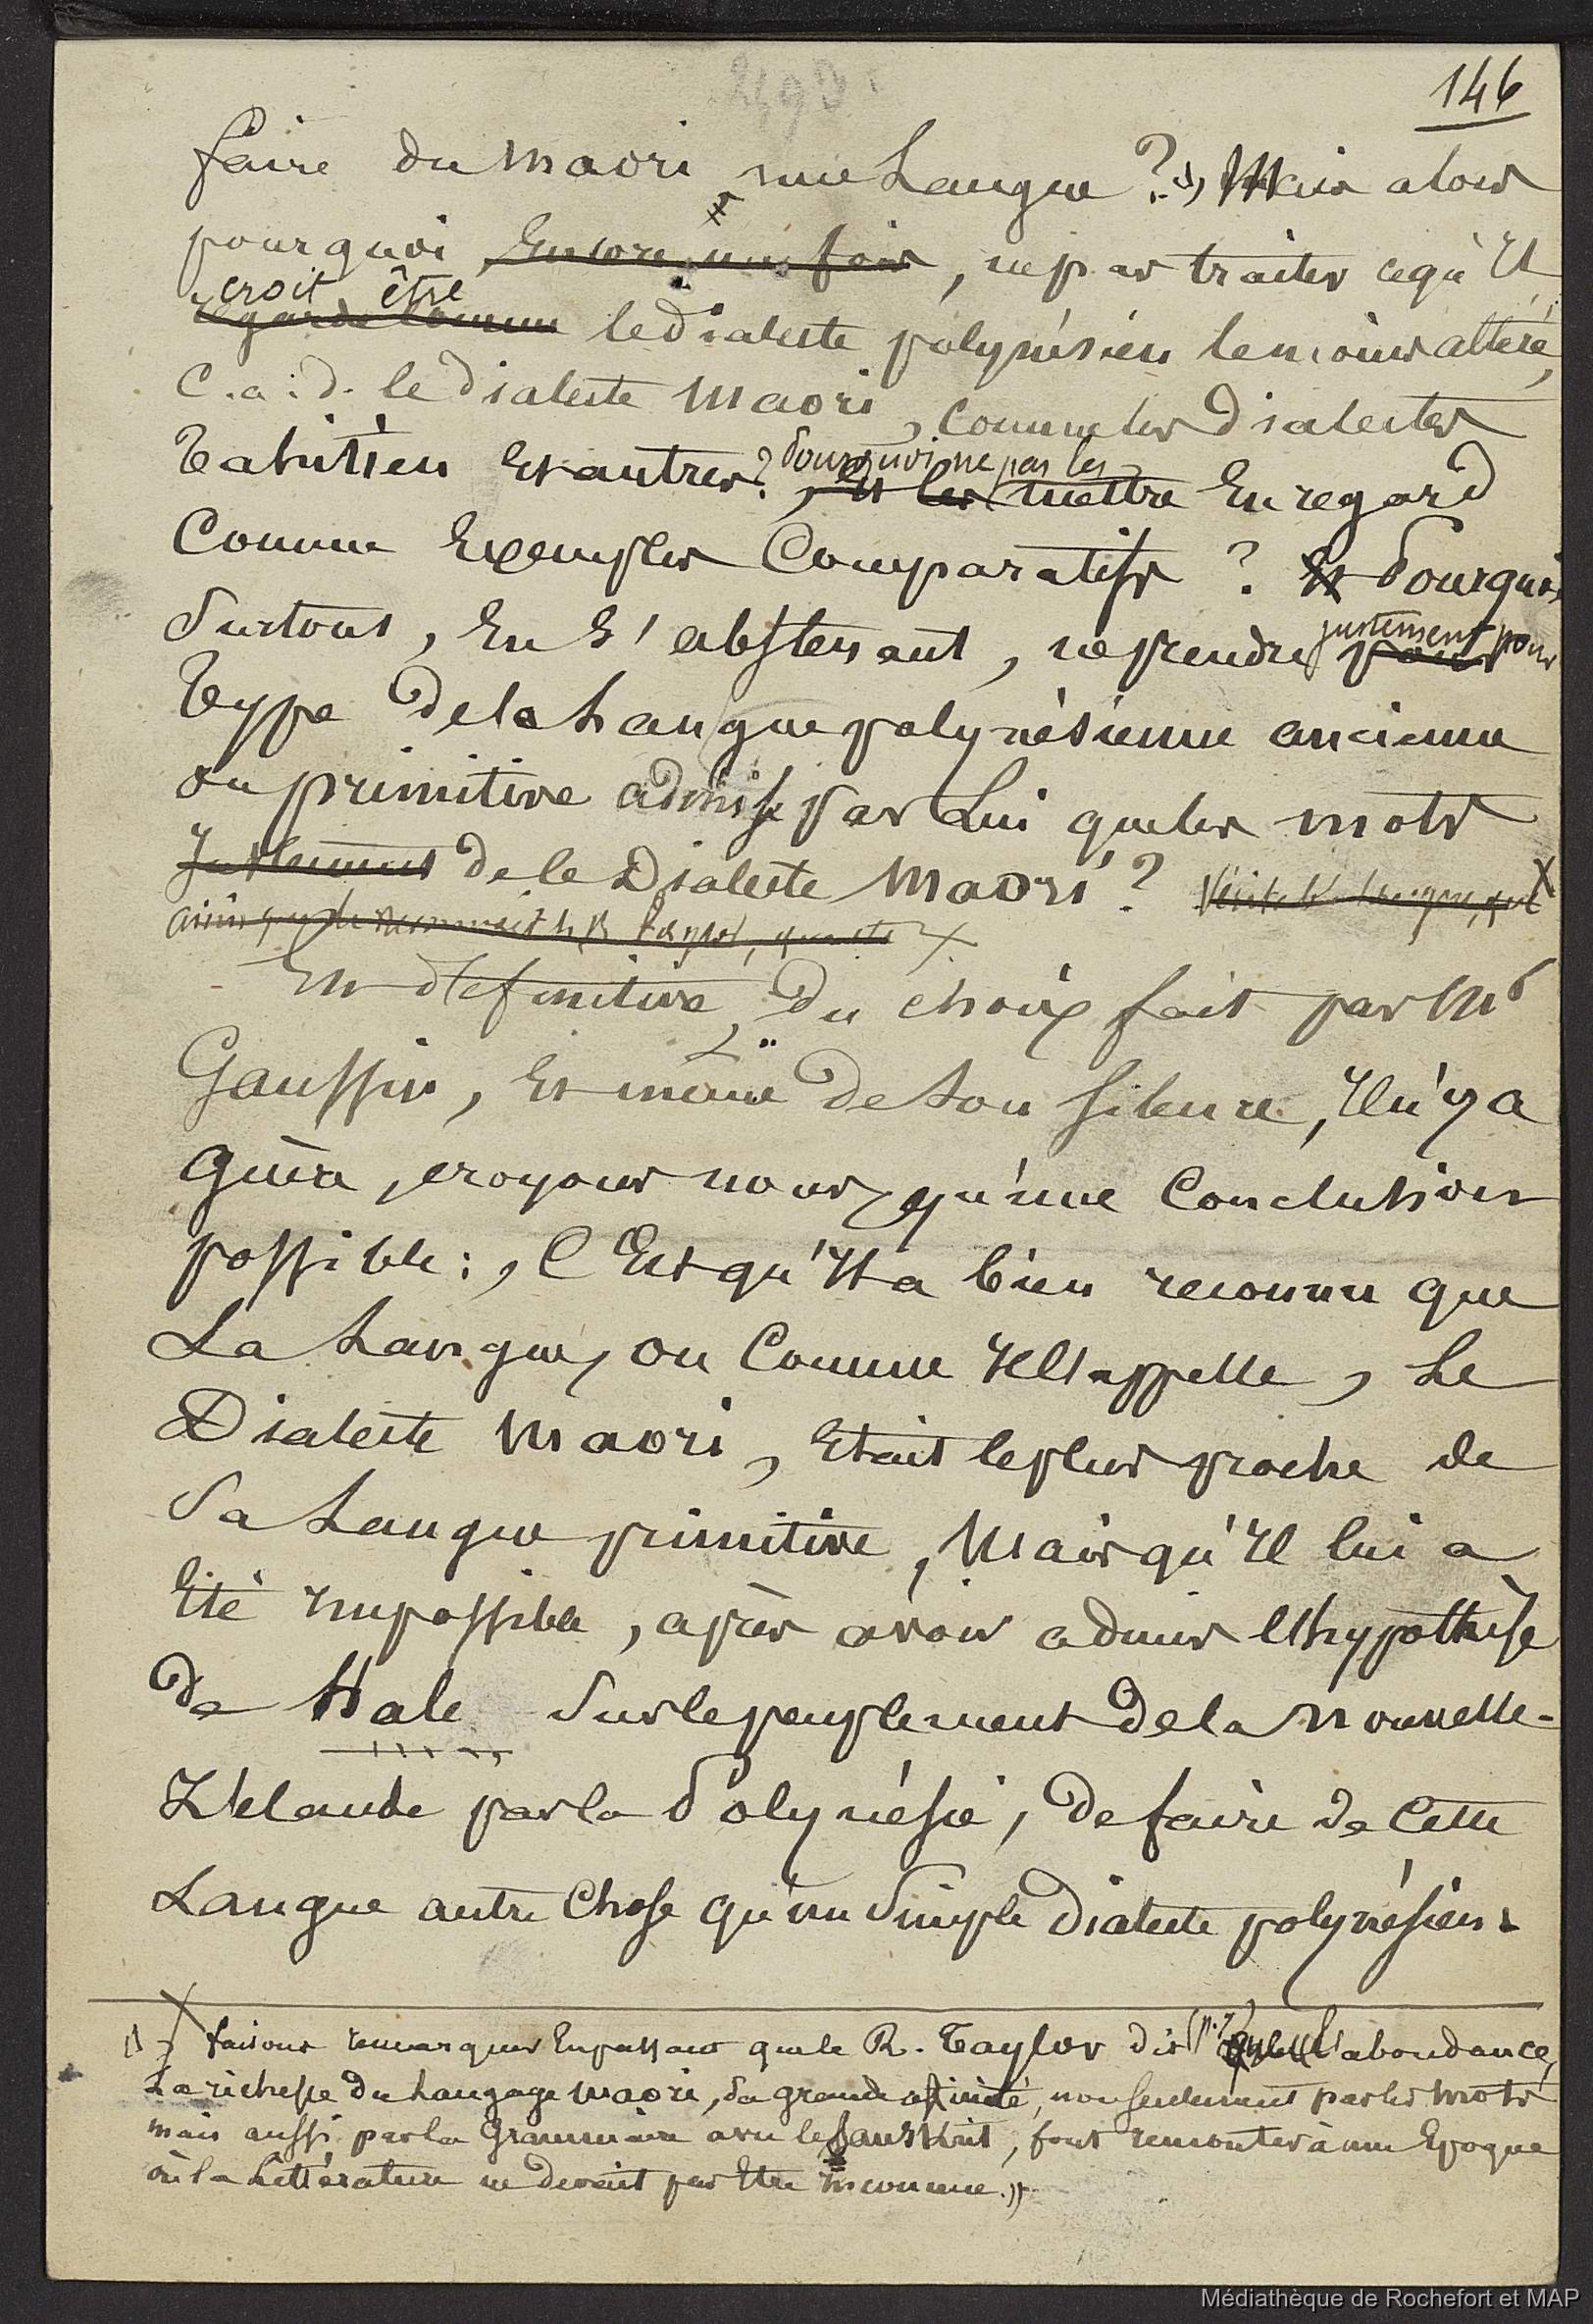 146
faire du maori une Langue ? (1) Mais alors
pourquoi, encore une fois, ne pas traiter ce qu'il
croit être
regarde comme le dialecte polynésien le moins altéré,
C.a.d. le dialecte Maori, comme les dialectes
Tahitien et autres ? Pourquoi ne pas les
, et les mettre en regard
Comme exemples Comparatifs ? Et Pourquoi
Surtout, en s'abstenant, ne prendre justement pour
Type de la Langue polynésienne ancienne
ou primitive admise par Lui que les mots
Justement de le Dialecte Maori ?
En définitive, du choix fait par Mr
Gaussin, et même de son silence, il n'y a
guère, croyons nous, qu'une Conclusion
possible :, C'est qu'il a bien reconnu que
La Langue, ou Comme il l'appelle, Le
Dialecte Maori, était le plus proche de
Sa Langue primitive, Mais qu'il lui a
été impossible, après avoir admis l'hypothèse
de Hale sur le peuplement de la Nouvelle-
Zélande par la Polynésie, de faire de Cette
Langue autre Chose qu'un Simple Dialecte polynésien.
(1) faisons remarquer en passant que le R. Taylor dit (p. ) l'abondance,
La richesse du Langage Maori, sa grande afinité, non seulement par les mots
mais aussi par la Grammaire avec le Sanskrit, font remonter à une Epoque
où la Littérature ne devait pas être inconnue. »
Médiathèque de Rochefort et MAP